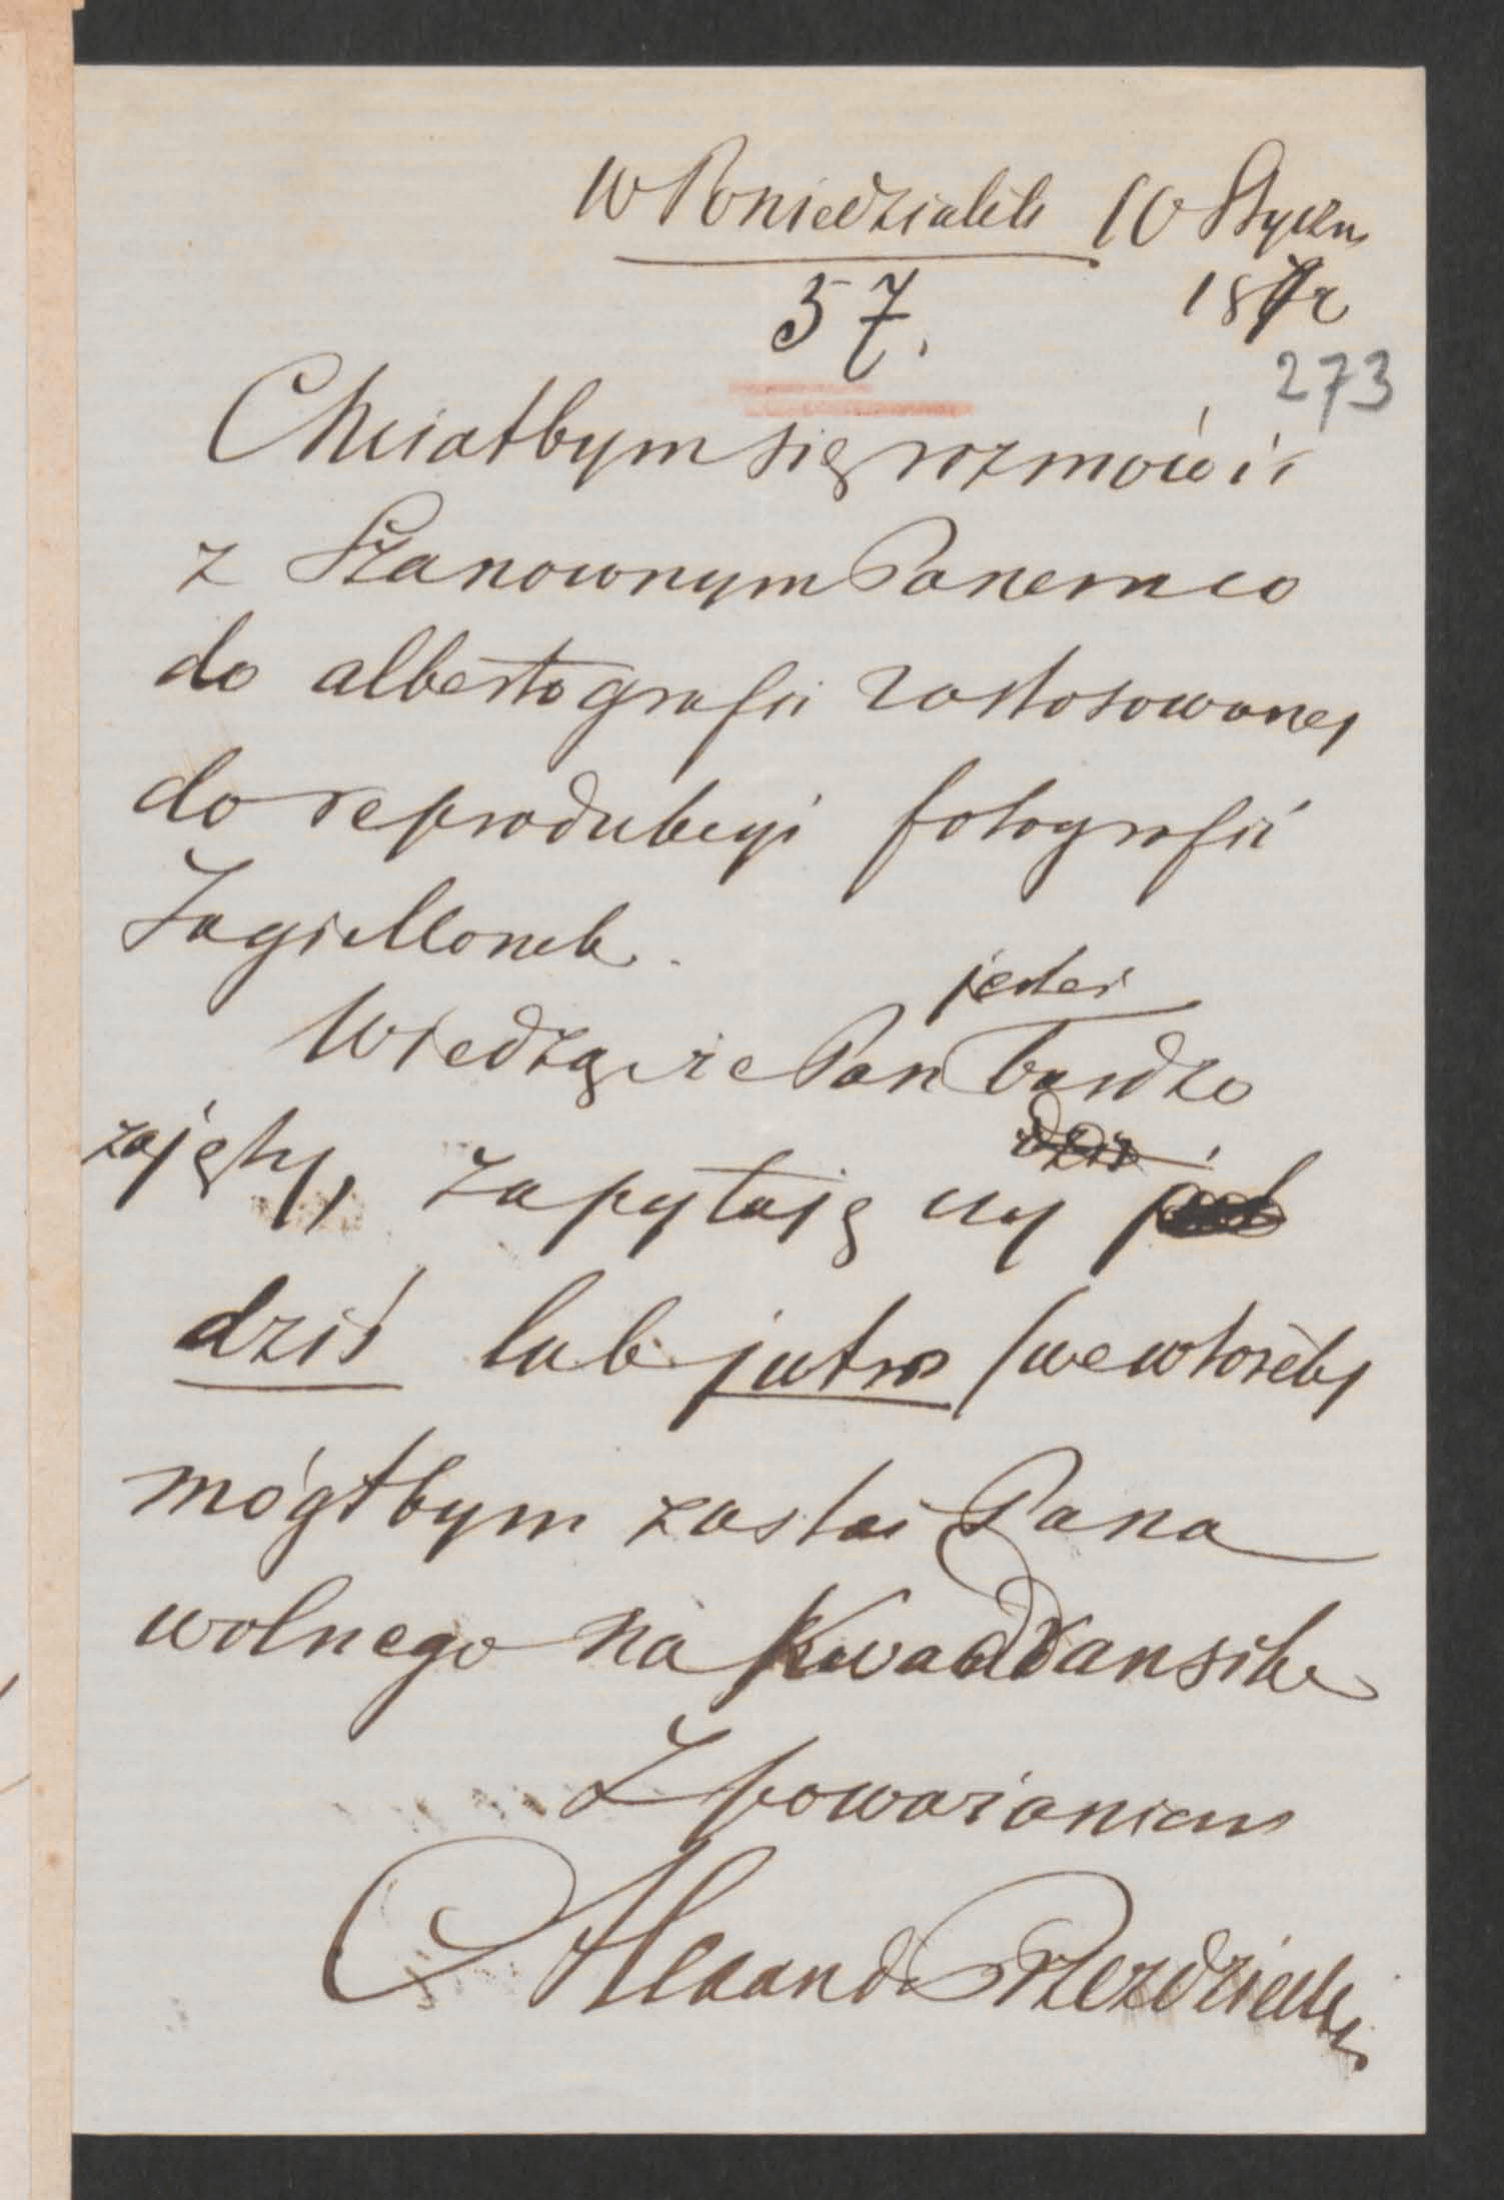 w Poniedziałek 10 Styczn
187 r
57.
273
Chciałbym się rozmówić
z Szanownym Panem co
do albertografii zastosowanej
do reprodukcyi fotografii
Jagiellonek.
jesteś
Wiedząc że Pan bardzo
zajęty, zapytuję czy
dziś lub jutro (we wtorek)
mógłbym zastać Pana
wolnego na kwadransik
Z poważaniem
Alexand Przezdziecki